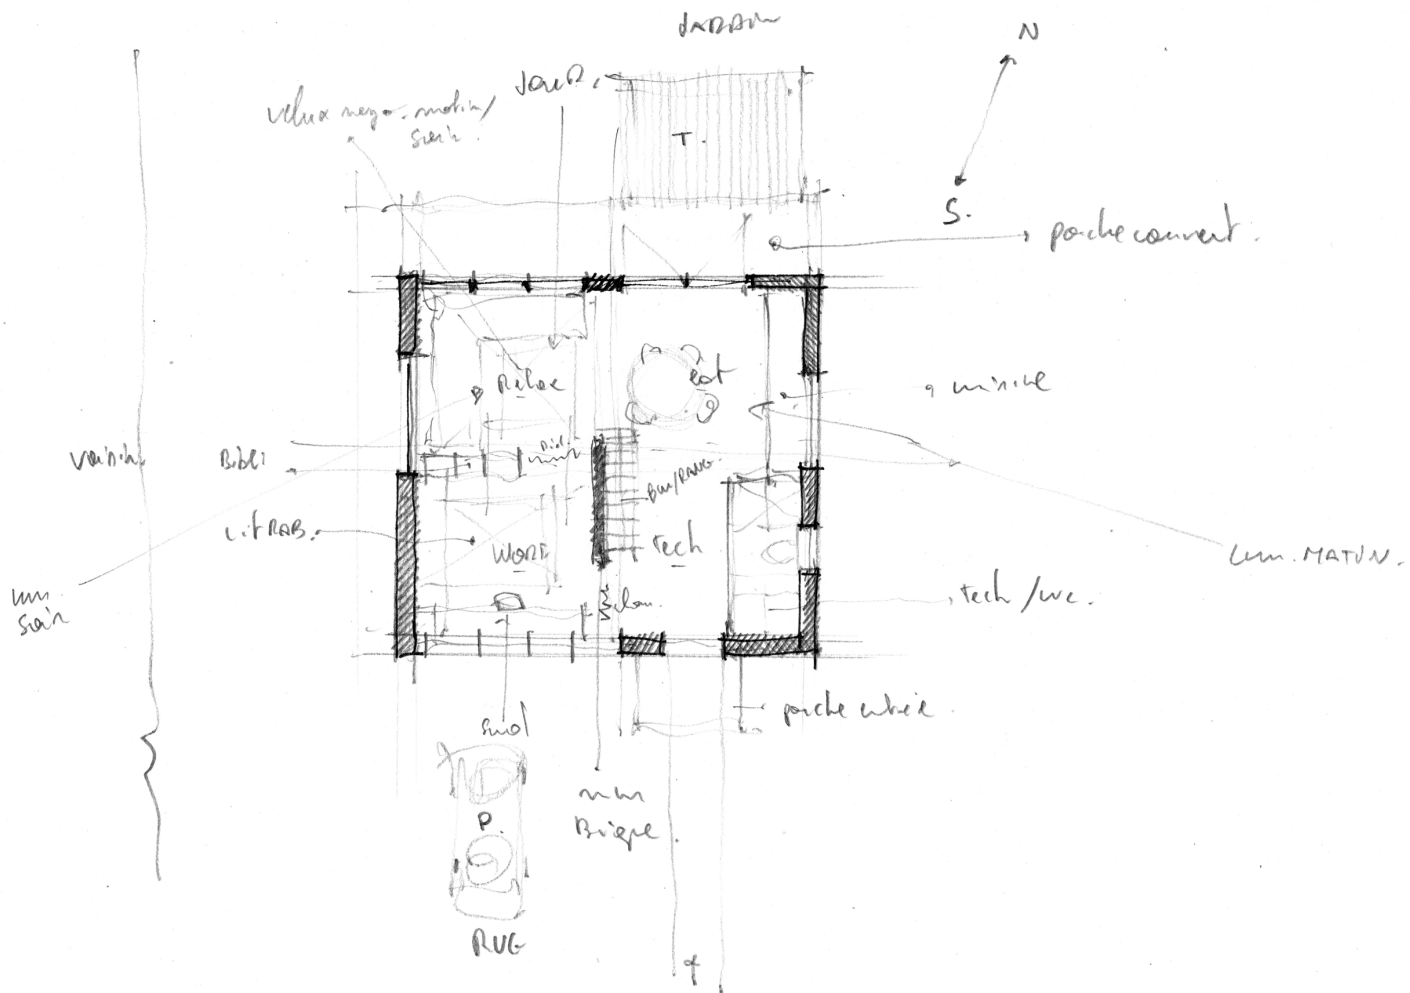 JARDIN
N
Jour.
Velux nego. matin/
soir.
T.
S.
porche couvert.
Relax
eat
Voisin.
Bibli
Bur/RANG
Lit RAB.
WORK
tech
Lum. MATIN.
Lum.
soir
tech/wc.
porche entrée.
sud
mur
Brique.
P.
RUE